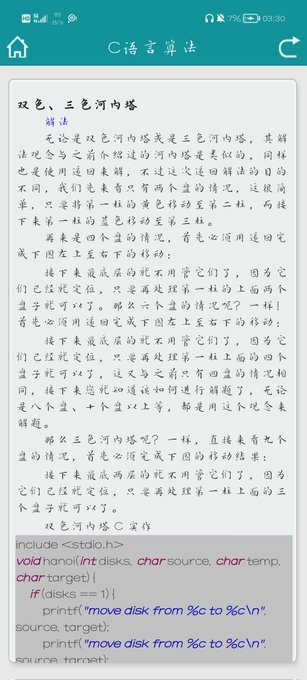 HD 5G 85 B/s 7% 03:30
C语言算法
双色、三色河内塔
解法
无论是双色河内塔或是三色河内塔，其解
法观念与之前介绍过的河内塔是类似的，同样
也是使用递回来解，不过这次递回解法的目的
不同，我们先来看只有两个盘的情况，这很简
单，只要将第一柱的黄色移动至第二柱，而接
下来第一柱的蓝色移动至第三柱。
再来是四个盘的情况，首先必须用递回完
成下图左上至右下的移动：
接下来最底层的就不用管它们了，因为它
们已经就定位，只要再处理第一柱的上面两个
盘子就可以了。那么六个盘的情况呢？一样！
首先必须用递回完成下图左上至右下的移动：
接下来最底层的就不用管它们了，因为它
们已经就定位，只要再处理第一柱上面的四个
盘子就可以了，这又与之前只有四盘的情况相
同，接下来您就知道该如何进行解题了，无论
是八个盘、十个盘以上等，都是用这个观念来
解题。
那么三色河内塔呢？一样，直接来看九个
盘的情况，首先必须完成下图的移动结果：
接下来最底两层的就不用管它们了，因为
它们已经就定位，只要再处理第一柱上面的三
个盘子就可以了。
双色河内塔 C 实作
include <stdio.h>
void hanoi(int disks, char source, char temp,
char target) {
if (disks == 1) {
printf("move disk from %c to %c\n",
source, target);
printf("move disk from %c to %c\n",
source, target);